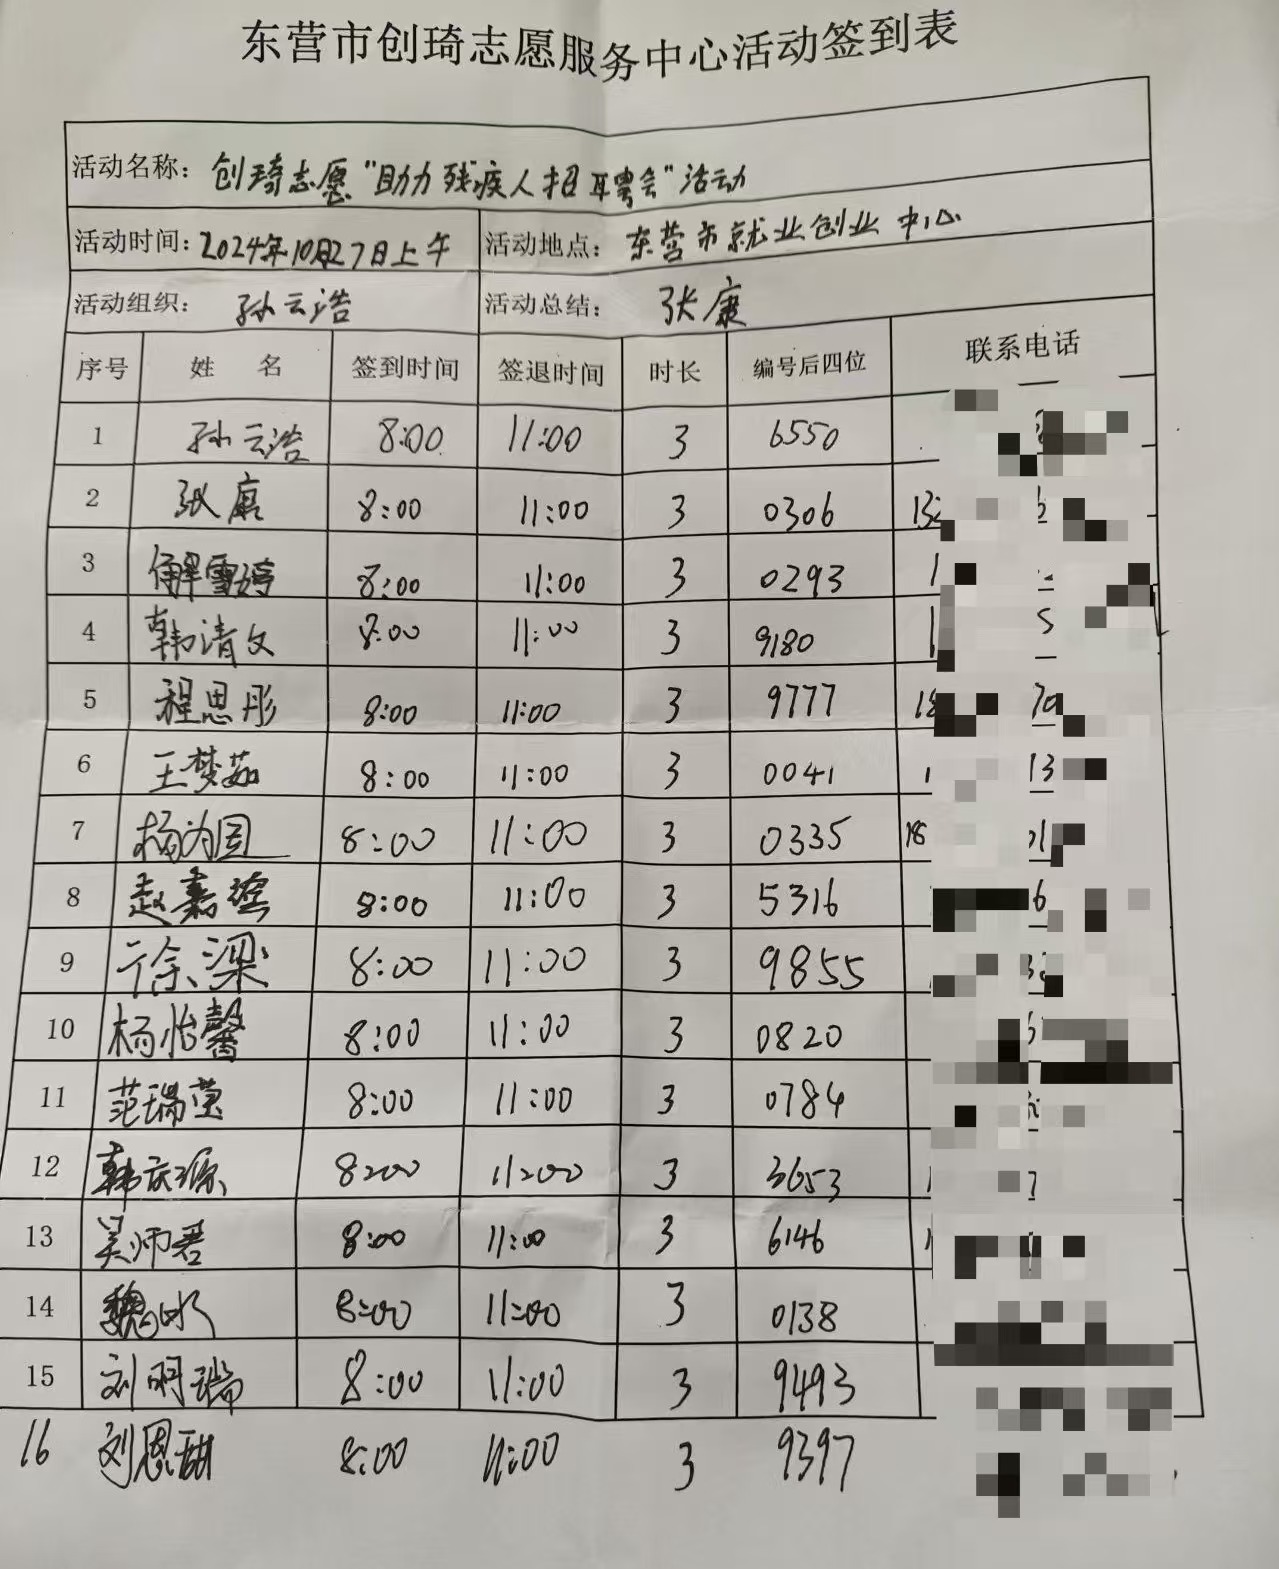 东营市创琦志愿服务中心活动签到表
活动名称：创琦志愿“助力残疾人招聘会”活动
活动时间：2024年10月27日上午 活动地点：东营市就业创业中心
活动组织：孙云浩 活动总结：张康
序号 姓 名 签到时间 签退时间 时长 编号后四位 联系电话
1 孙云浩 8:00 11:00 3 6550
2 张康 8:00 11:00 3 0306 13
3 解雪婷 8:00 11:00 3 0293 1
4 韩清文 8:00 11:00 3 9180 1 5
5 程思彤 8:00 11:00 3 9777 18 70
6 王梦茹 8:00 11:00 3 0041 1 13
7 杨为国 8:00 11:00 3 0335 18 01
8 赵嘉 8:00 11:00 3 5316 6
9 徐梁 8:00 11:00 3 9855
10 杨怡馨 8:00 11:00 3 0820
11 范瑞莹 8:00 11:00 3 0784
12 韩庆源 8:00 11:00 3 3653 1 7
13 吴师君 8:00 11:00 3 6146 1
14 魏冰 8:00 11:00 3 0138
15 刘明瑞 8:00 11:00 3 9493
16 刘恩甜 8:00 11:00 3 9397